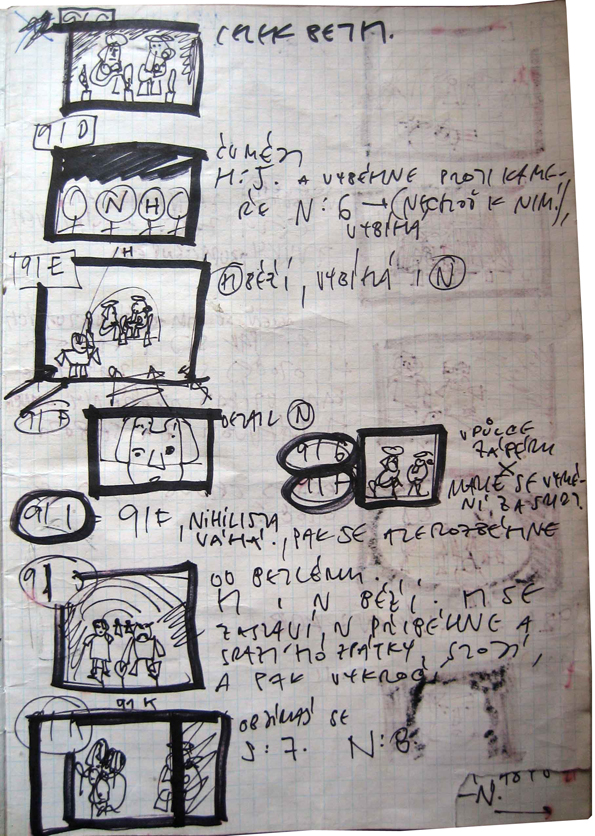 CELEK BETM.
91D
ČUMĚJÍ
H: 5. A VYBĚHNE PROTI KAME-
ŘE N: 6 → (NECHOĎ K NIM!),
VYBÍHÁ
N H
91E
H
H BĚŽÍ, VYBÍHÁ I N
91F
DETAIL N
91G
91H
V PŮLCE
ZÁBĚRU
91I
91F, NIHILISTA
VÁHÁ, PAK SE ALE ROZBĚHNE
91J
OD BETLÉMU.
H I N BĚŽÍ. H SE
ZASTAVÍ, N PŘIBĚHNE A
SRAZÍ HO ZPÁTKY, STOJÍ,
A PAK VYKROČÍ,
91K
OBJÍMAJÍ SE
5: 7. N: 8
TOTO
N.